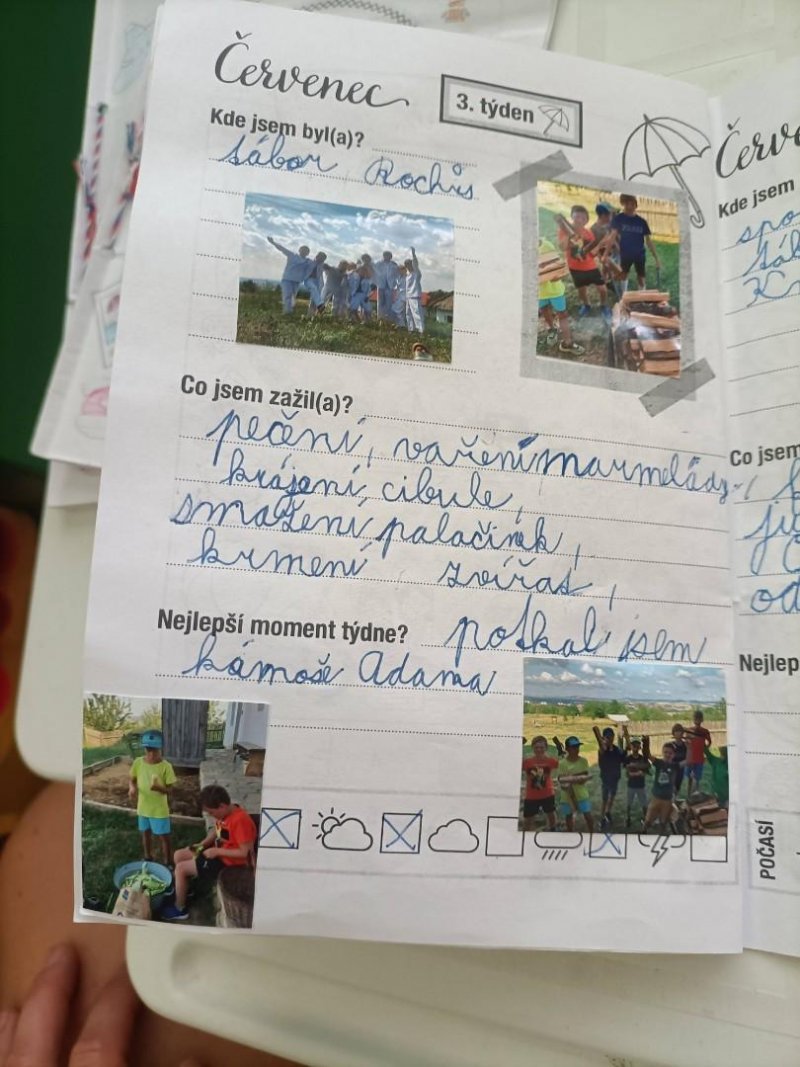 Červenec
3. týden
Kde jsem byl(a)?
tábor Rochůs
Co jsem zažil(a)?
pečení, vaření marmelády,
krájení cibule,
smažení palačinek,
krmení zvířat,
Nejlepší moment týdne? potkal jsem
kámoše Adama
Kde jsem
Co jsem
Nejlep
POČASÍ